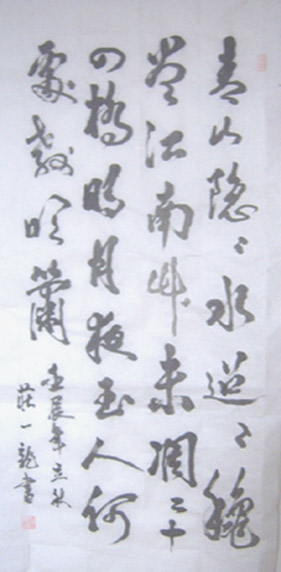 青山隐〻水迢〻穐
盡江南艸未凋二十
四橋明月夜玉人何
處教吹簫
壬辰年立秋
莊一龍書